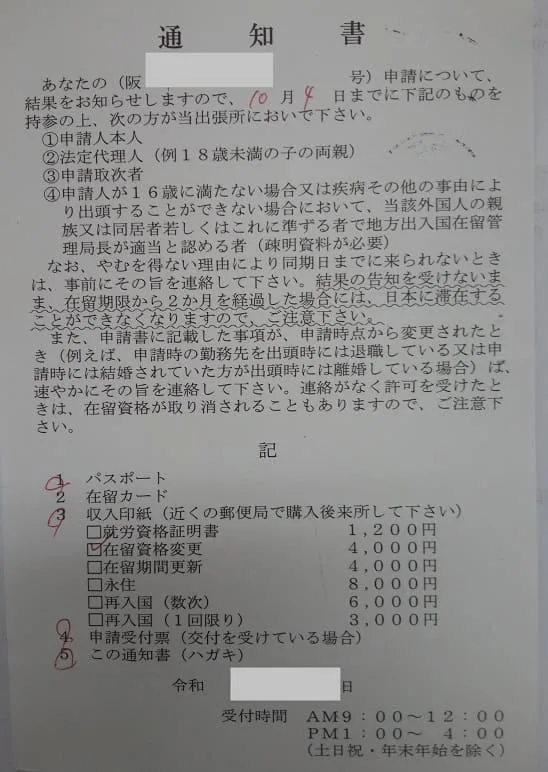 通知書
あなたの（阪 号）申請について、
結果をお知らせしますので、10月4日までに下記のものを
持参の上、次の方が当出張所においで下さい。
①申請人本人
②法定代理人（例１８歳未満の子の両親）
③申請取次者
④申請人が１６歳に満たない場合又は疾病その他の事由によ
り出頭することができない場合において、当該外国人の親
族又は同居者若しくはこれに準ずる者で地方出入国在留管
理局長が適当と認める者（疎明資料が必要）
なお、やむを得ない理由により同期日までに来られないとき
は、事前にその旨を連絡して下さい。結果の告知を受けないま
ま、在留期限から２か月を経過した場合には、日本に滞在する
ことができなくなりますので、ご注意下さい。
また、申請書に記載した事項が、申請時点から変更されたと
き（例えば、申請時の勤務先を出頭時には退職している又は申
請時には結婚されていた方が出頭時には離婚している場合）ば、
速やかにその旨を連絡して下さい。連絡がなく許可を受けたと
きは、在留資格が取り消されることもありますので、ご注意下
さい。
記
1 パスポート
2 在留カード
3 収入印紙（近くの郵便局で購入後来所して下さい）
□就労資格証明書 １,２００円
☑在留資格変更 ４,０００円
□在留期間更新 ４,０００円
□永住 ８,０００円
□再入国（数次） ６,０００円
□再入国（１回限り） ３,０００円
4 申請受付票（交付を受けている場合）
5 この通知書（ハガキ）
令和 日
受付時間 ＡＭ９：００～１２：００
ＰＭ１：００～ ４：００
（土日祝・年末年始を除く）